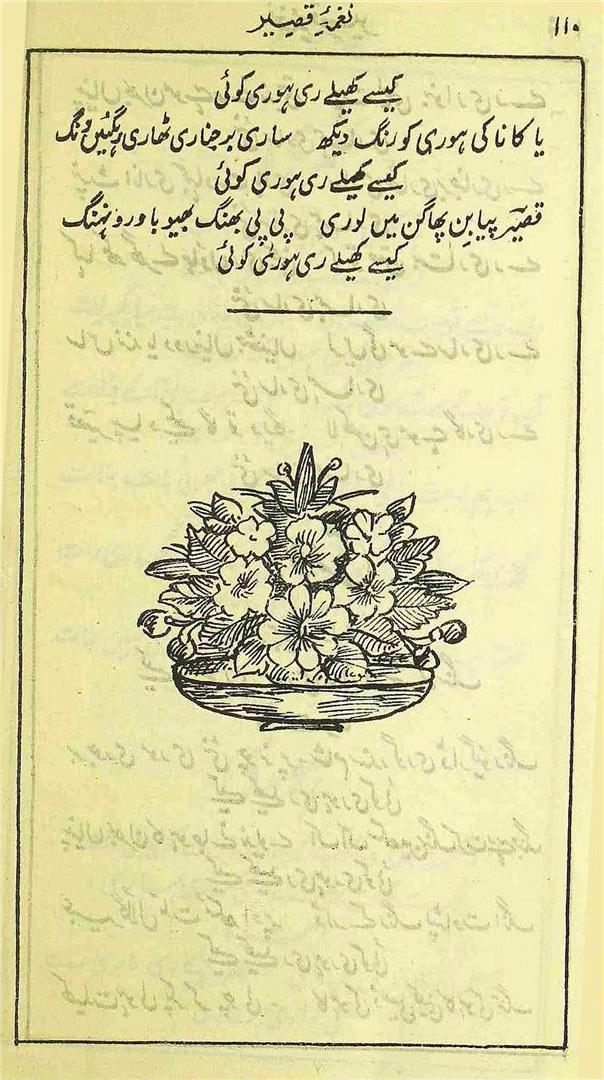 ۱۱۰
نغمۂ قصیر
کیسے کھیلے ری ہوری کوئی
یا کانا کی ہوری کو رنگ دیکھ ساری برجناری ٹھاری رہگئیں دنگ
کیسے کھیلے ری ہوری کوئی
قصیرؔ پیا بن پھاگن میں لوری پی پی بھنگ بھیو باورو نہنگ
کیسے کھیلے ری ہوری کوئی